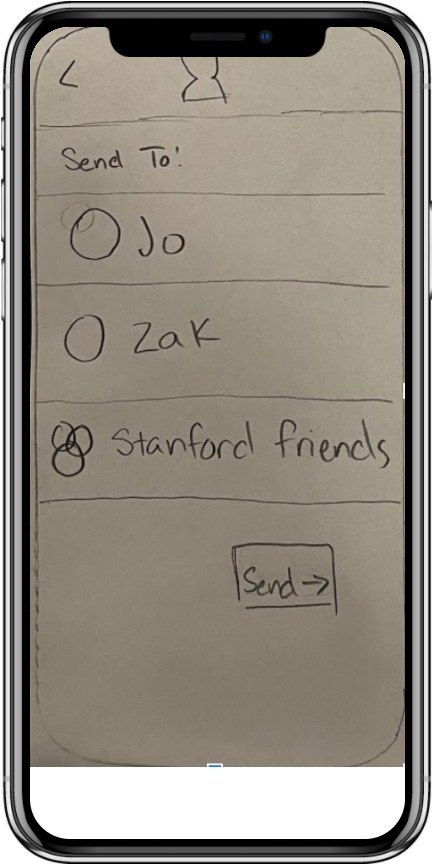 <
Send To:
Jo
Zak
Stanford friends
Send →